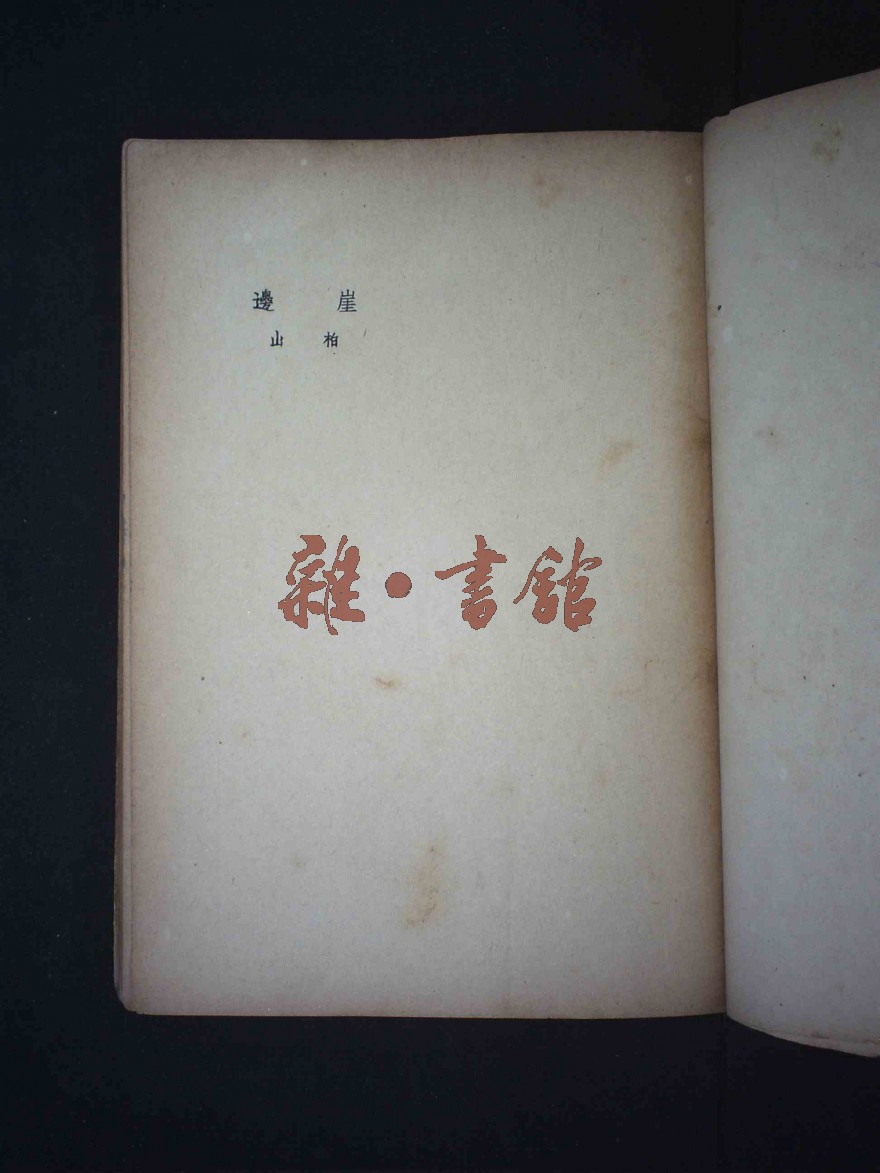 崖邊
柏山
雜·書館